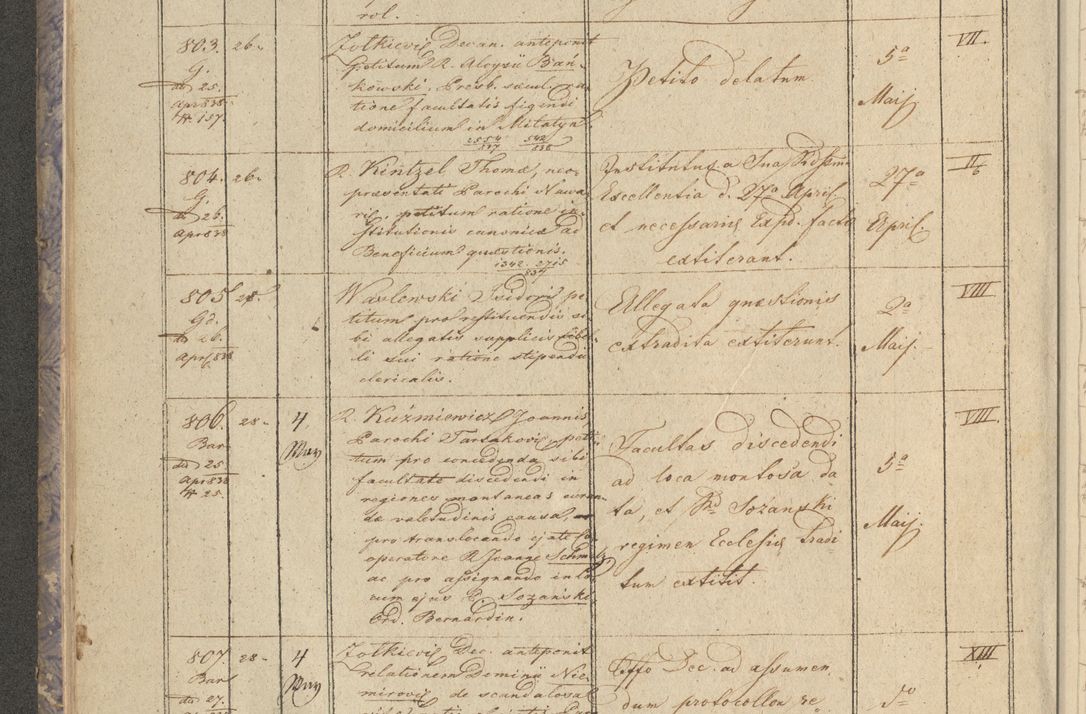 rol.
803. 26.
G.
dto 25.
Apr 838
№ 157.
Zołkieviẽ Decan. anteponit
petitum R. Aloysii Ban-
kowski, Presb. saecul. ra-
tione facultatis figendi
domicilium in Milatyn.
2554/837 542/838
Petito delatum
5ª
Maij
VII.
804. 26.
G.
dto 26.
Apr 838
R. Kintzel Thomæ, neo-
præsentati Parochi Nawa-
riẽ, petitum ratione in-
stitutionis canonicæ ad
Beneficium quæstionis.
1342. 2715/837
Institutus a Sua
Excellentia d. 27ª Aprił.
et necessariẽ Exped. factẽ
extiterant.
27ª
April.
II/6
805 28.
Gd.
dto 26.
Apr 838
Waslewski Isidori pe-
titum pro restituendis si-
bi allegatis supplicis libel-
li sui ratione stipendii
clericalis.
Allegata quæstionis
extradita extiterunt.
2ª
Maij.
VIII
806. 28. 4
Bar
dto 25
Apr 838
№ 25.
May
R. Kuźmiewicz Joannis
Parochi Tartakoviẽ, peti-
tum pro concedenda sibi
facultate discedendi in
regiones montaneas curan-
dæ valetudinis causa,
pro translocando ejate Co-
operatore R. Joanne Schmalz
ac pro assignando in lo-
cum ejus P. Sozański
Ord. Bernardin.
Facultas discedendi
ad loca montosa da-
ta, et Rd Sozański
regimen Ecclesiẽ tradi
tum extitit.
5ª
Maij.
VIII.
807. 28. 4
Bar
dto 27.
May
Zołkieviẽ Dec. anteponit
relationem Dominii Nie-
miroviẽ de scandalosa
Offo Dec. ad assumen
dum protocollon re-
XIII